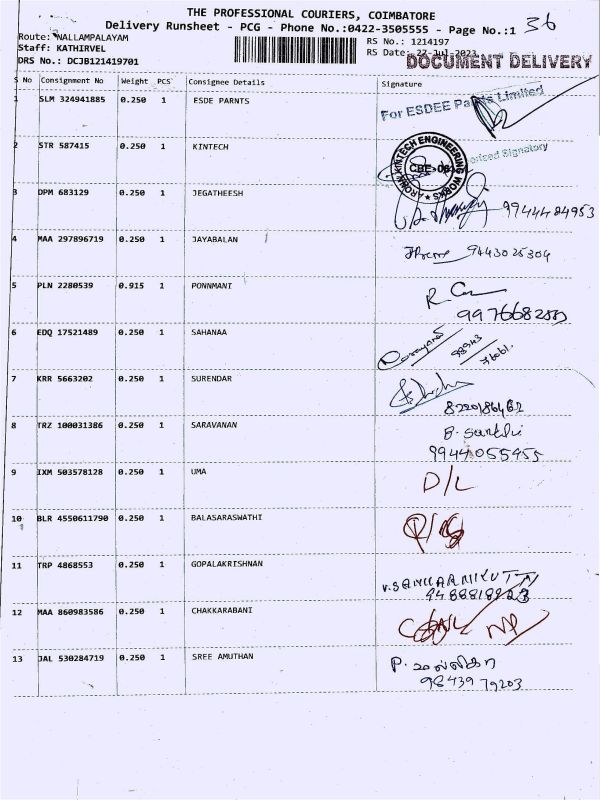 THE PROFESSIONAL COURIERS, COIMBATORE
36
Delivery Runsheet - PCG - Phone No.:0422-3505555 - Page No.:1
Route: NALLAMPALAYAM
RS No.: 1214197
Staff: KATHIRVEL
RS Date: 22-Jul-2023
DRS No.: DCJB121419701
DOCUMENT DELIVERY
S No Consignment No Weight PCS Consignee Details Signature
1 SLM 324941885 0.250 1 ESDE PARNTS
For ESDEE Paints Limited
Authorized Signatory
2 STR 587415 0.250 1 KINTECH
KINTECH ENGINEERING WORKS
CBE-06
3 DPM 683129 0.250 1 JEGATHEESH
9944484953
4 MAA 297896719 0.250 1 JAYABALAN
9443025304
5 PLN 2280539 0.915 1 PONNMANI
6 EDQ 17521489 0.250 1 SAHANAA
Narayanan
98943
7 KRR 5663202 0.250 1 SURENDAR
8220186462
8 TRZ 100031386 0.250 1 SARAVANAN
9944055455
9 IXM 503578128 0.250 1 UMA
D/L
10 BLR 4550611790 0.250 1 BALASARASWATHI
11 TRP 4868553 0.250 1 GOPALAKRISHNAN
V.SANKARANKUTTY
9488818923
12 MAA 860983586 0.250 1 CHAKKARABANI
13 JAL 530284719 0.250 1 SREE AMUTHAN
P. மல்லிகா
98439 79203